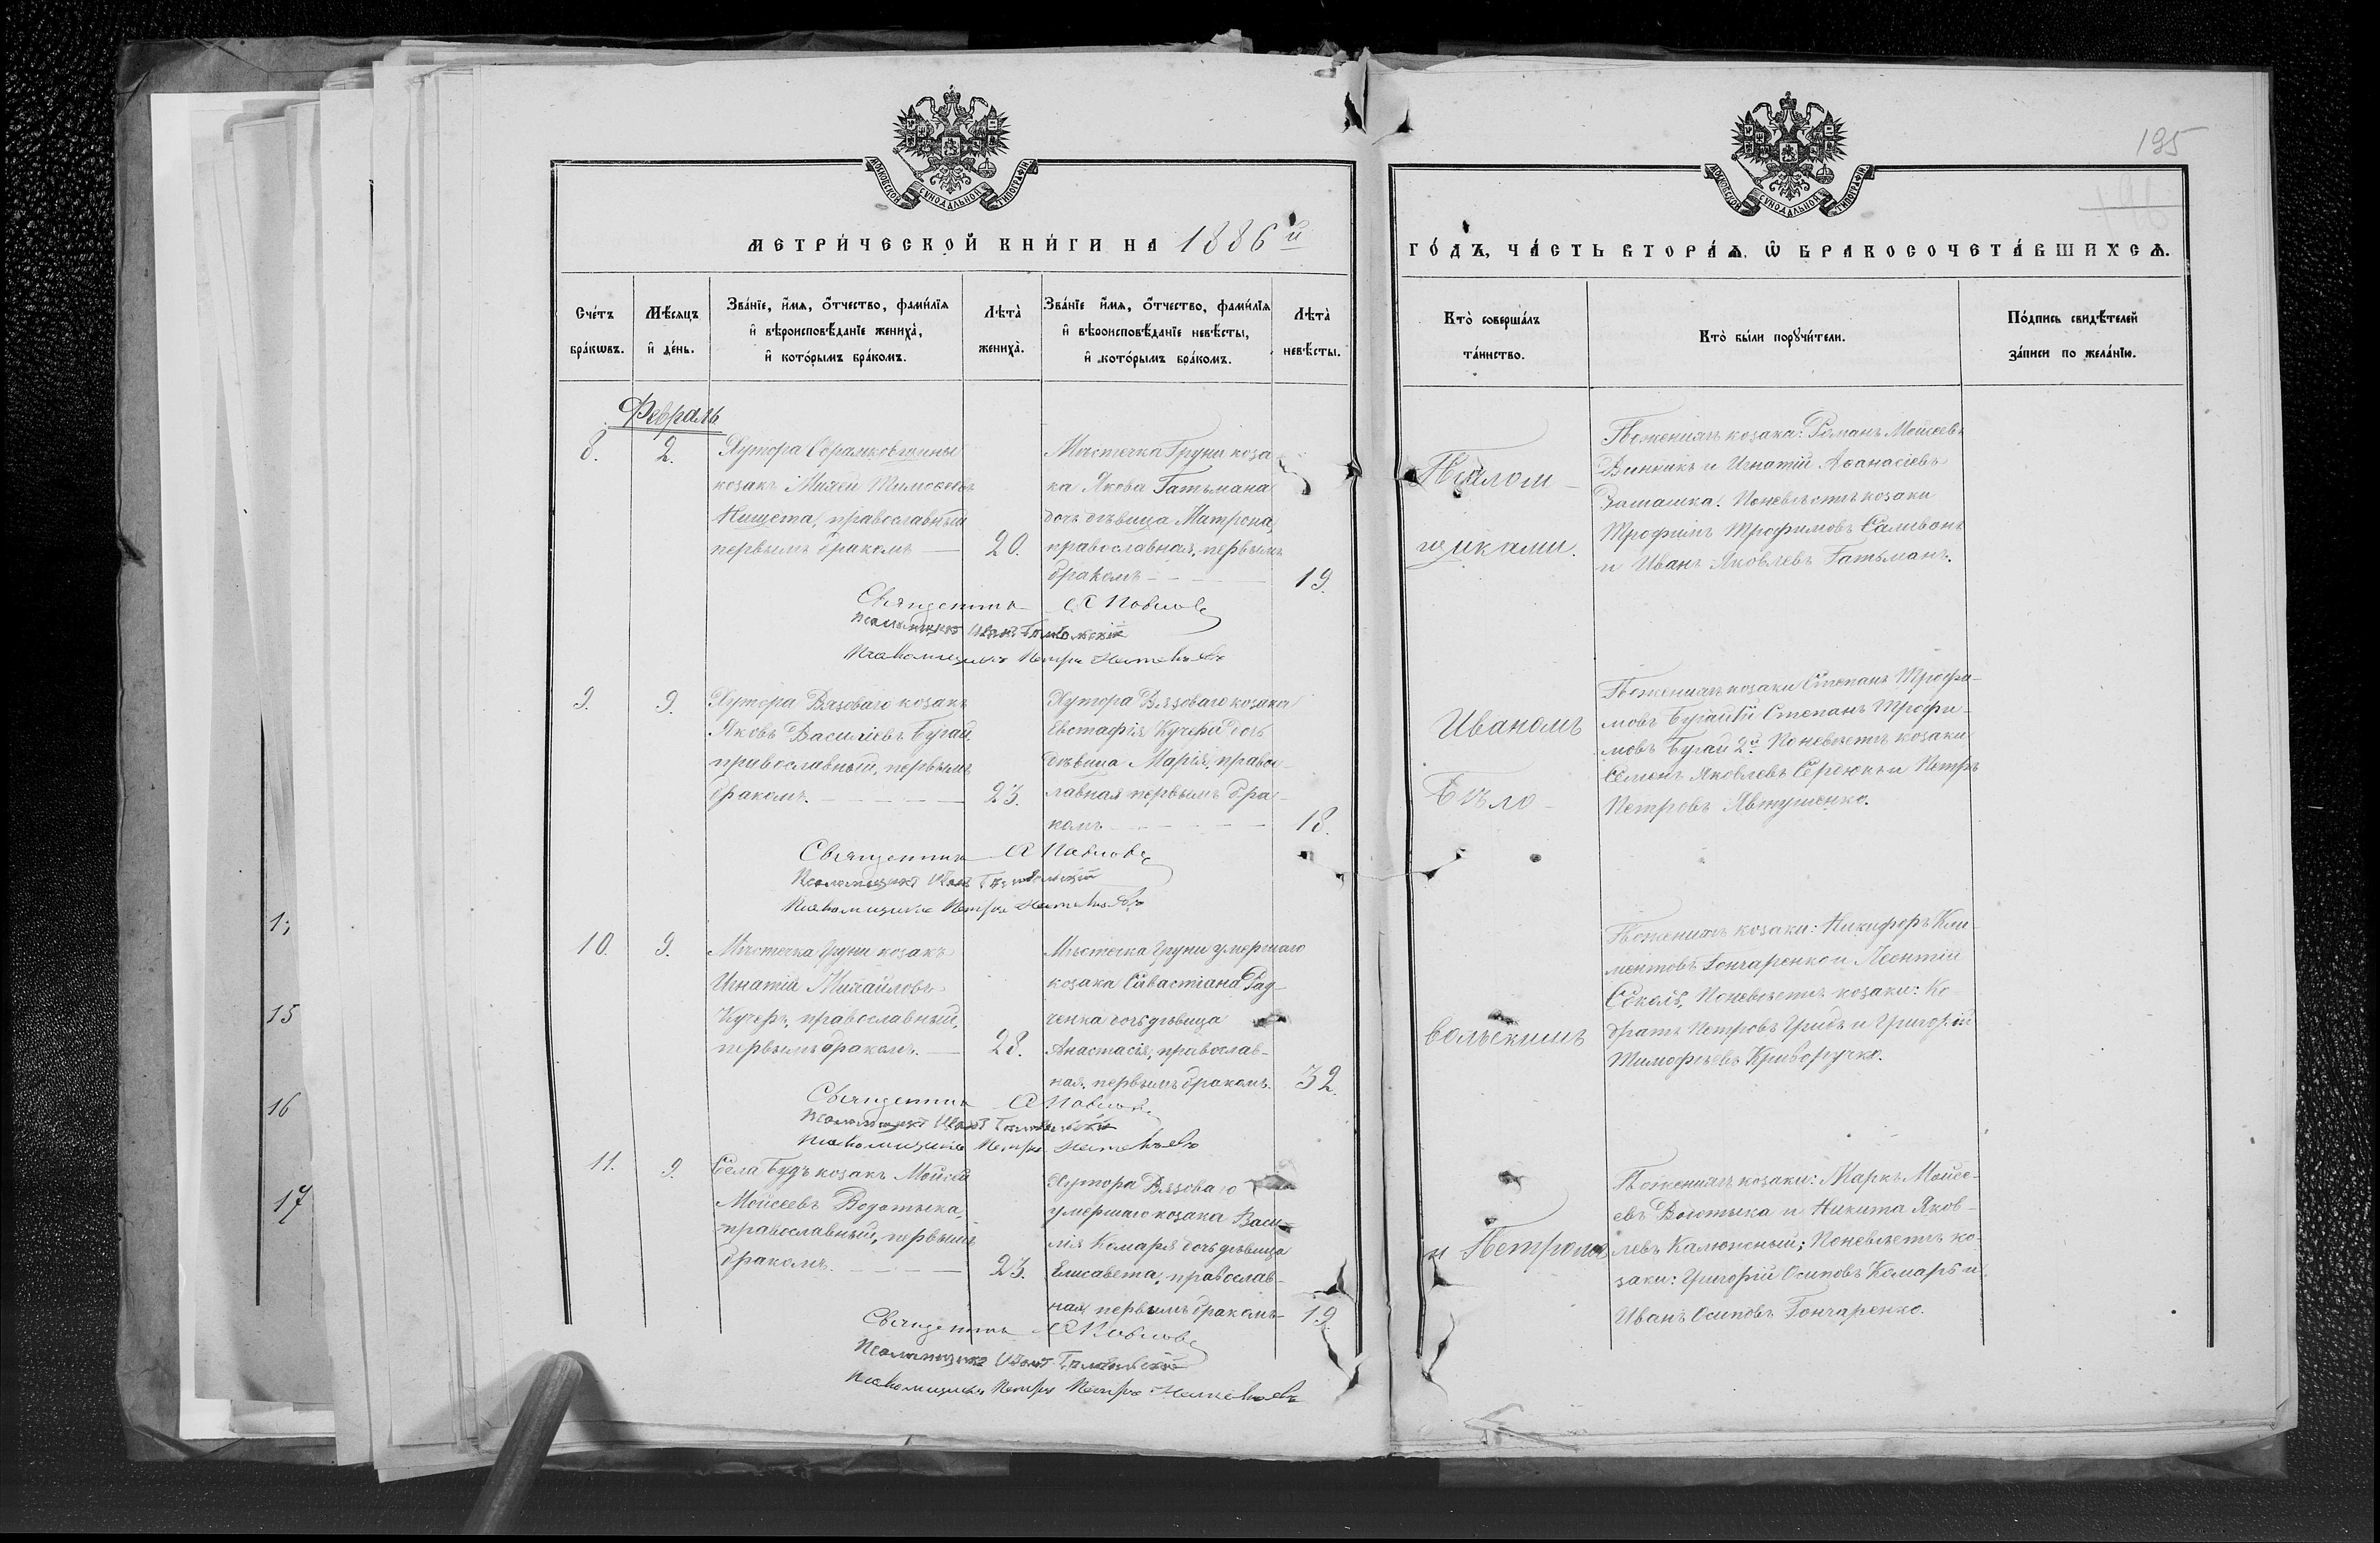 МОСКОВСКОЙ СѴНОДАЛЬНОЙ ТИПОГРАФІИ
МЕТРИ́ЧЕСКОЙ КНИ́ГИ НА 1886 й
Сче́тъ
бра́кѡвъ.
Мѣ́сяцъ
и҆ де́нь.
Зва́нїе, и҆́мѧ, ѻ҆́тчество, фами́лїѧ
и҆ вѣроисповѣ́данїе жениха̀,
и҆ кото́рымъ бра́комъ.
Лѣта̀
жениха̀.
Зва́нїе и҆́мѧ, ѻ҆́тчество, фами́лїѧ
и҆ вѣроисповѣ́данїе невѣ́сты,
и҆ кото́рымъ бра́комъ.
Лѣта̀
невѣ́сты.
Февраль
8.
2.
Хутора
козакъ Михей Тимоѳеевъ
Нищета, православный
первымъ бракомъ —
20.
Мѣстечка Груни коза
ка Якова Гатьмана
дочь дѣвица Матрона,
православная, первымъ
бракомъ
19.
Священникъ А Павловъ
Псаломщикъ Иванъ
Псаломщикъ Петръ
9.
9.
Хутора Вязоваго козакъ
Яковъ Василіевъ Бугай
православный, первымъ
бракомъ.
23.
Хутора Вязоваго козака
Евстафія Кучера дочь
дѣвица Марія, правос-
лавная первымъ бра-
комъ
18.
Священникъ А Павловъ
Псаломщикъ Иванъ
Псаломщикъ Петръ
10.
9.
Мѣстечка Груни козакъ
Игнатій Михайловъ
Кучеръ, православный,
первымъ бракомъ. —
28.
Мѣстечка Груни умершаго
козака Севастіана Рад-
ченка дочь дѣвица
Анастасія, православ-
ная, первымъ бракомъ.
32.
Священникъ А Павловъ
Псаломщикъ Иванъ
Псаломщикъ Петръ
11.
9.
Села Будъ козакъ Мойсей
Мойсеевъ Водотыка,
православный, первымъ
бракомъ.
23.
Хутора Вязоваго
умершаго козака Васи-
лія Комаря дочь дѣвица
Елисавета, православ-
ная первымъ бракомъ
19.
Священникъ А Павловъ
Псаломщикъ Иванъ
Псаломщикъ Петръ Петръ
195
МОСКОВСКОЙ СѴНОДАЛЬНОЙ ТИПОГРАФІИ
ГО́ДЪ, ЧА́СТЬ ВТОРА́Ѧ, Ѡ҆ БРАКОСОЧЕТА́ВШИХСѦ.
Кто̀ соверша́лъ
та́инство.
Кто̀ бы́ли порꙋчи́тели.
По́дпись свидѣ́телей
за́писи по жела́нїю.
Псалом-
щиками.
Иваномъ
Бѣло-
вольскимъ
и Петромъ
По женихѣ козака: Романъ Мойсеевъ
Винникъ и Игнатій Аѳанасіевъ
По невѣстѣ козаки
Трофимъ Трофимовъ Саливонъ
и Иванъ Яковлевъ Гатьманъ.
По женихѣ козаки Степанъ Трофи-
мовъ Бугай и Степанъ Трофи-
мовъ Бугай 2й По невѣстѣ козаки
Семенъ Яковлевъ Сердюкъ и Петръ
Петровъ Явтушенко.
По женихѣ козаки: Никифоръ Кли-
ментовъ Гончаренко и Леонтій
Соколъ, По невѣстѣ козаки: Ко-
дратъ Петровъ Гридъ и Григорій
Тимофѣевъ Криворучко.
По женихѣ козаки: Маркъ Мойсе-
евъ Водотыка и Никита Яков-
левъ Калюжный; По невѣстѣ ко-
заки: Григорій Осиповъ Комаръ и
Иванъ Осиповъ Гончаренко.
1;
15
16
17